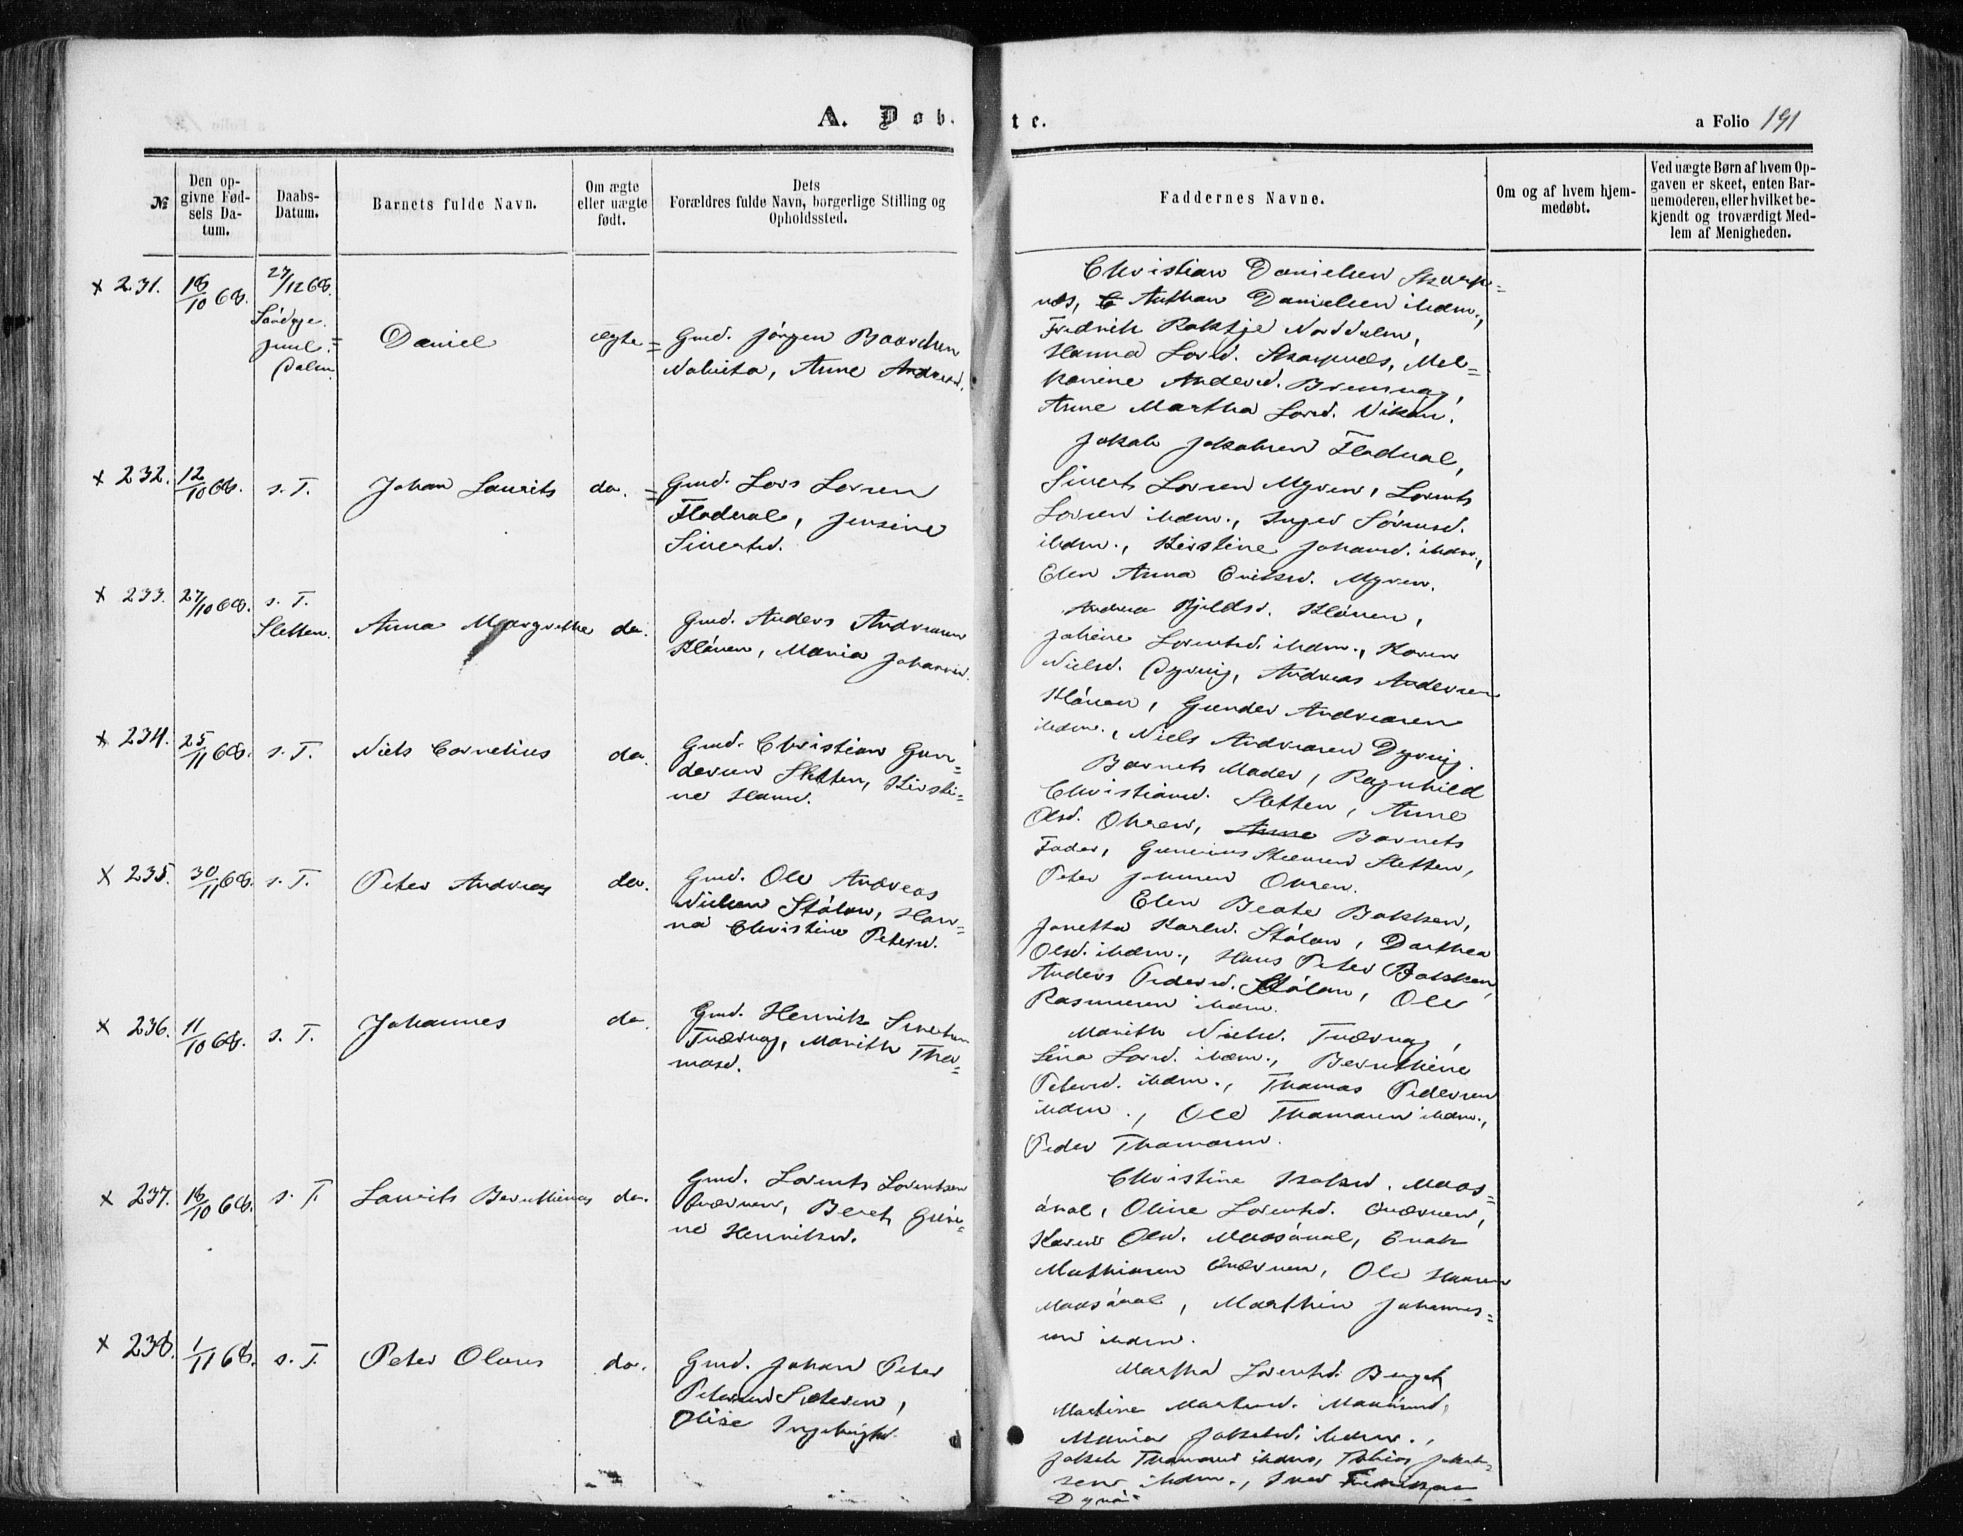 A. Døb. te.
a Folio 191
№
Den opgivne Fødsels Datum.
Daabs-Datum.
Barnets fulde Navn.
Om ægte eller uægte født.
Dets Forældres fulde Navn, borgerlige Stilling og Opholdssted.
Faddernes Navne.
Om og af hvem hjemmedøbt.
Ved uægte Børn af hvem Opgaven er skeet, enten Barnemoderen, eller hvilket bekjendt og troværdigt Medlem af Menigheden.
x 231. 18/10 68. 27/12 68.
Søndage
Juul.
Dalen
Daniel ægte
Gmd. Jørgen Baardsen
Anne Andersd.
Christian Danielsen Skarp=
næs, Anthon Danielsen ibdm.,
Fredrik Norddalen,
Hanna Larsd. Skarpnæs, Mel=
Andersd. Bremsnæs,
Anne Martha Larsd. Viken.
x 232. 12/10 68. s. T. Johan Laurits do.
Gmd. Lars Larsen
Flatval, Jensine
Sivertsd.
Jakob Jakobsen Flatval,
Sivert Larsen Myren, Lorents
Larsen ibdm., Inger Sørensd.
ibdm., Kirstine Johansd. ibdm.,
Elen Anna Eriksd. Myren.
x 233. 27/10 68. s. T.
Sletten. Anna Margrethe do.
Gmd. Anders Andreasen
Kløven, Maria Johansd.
Andrea Kjeldsd. Kløven,
Lorentsd. ibdm., Karen
Nielsd. Dyrvig, Andreas Andersen
Kløven, Gunder Andreasen
ibdm., Niels Andreasen Dyrvig.
x 234. 25/11 68. s. T. Niels Cornelius do.
Gmd. Christian Gun=
dersen Sletten, Kirsti=
ne Hansd.
Barnets Moder, Ragnhild
Christiansd. Sletten, Anne
Olsd. Ohren, Anne Barnets
Fader, Sletten,
Peter Johnsen Ohren.
x 235. 30/11 68. s. T. Peter Andreas do.
Gmd. Ole Andreas
Nielsen Stølan, Han=
na Christine Petersd.
Elen Beate Bakken,
Janetta Karlsd. Stølan, Dorthea
Olsd. ibdm., Hans Peter Bakken,
Anders Pedersd. Stølan, Ole
Rasmusen ibdm.
x 236. 11/10 68. s. T. Johannes do.
Gmd. Henrik Sivertsen
Tvervag, Marith Tho=
masd.
Marith Nielsd. Tvervag,
Lina Larsd. ibdm., Bernthine
Petersd. ibdm., Thomas Pedersen
ibdm., Ole Thomasen ibdm.,
Peder Thomasen.
x 237. 18/10 68. s. T. Laurits Bernthinus do.
Gmd. Lorents Lorentsen
Qværnen, Beret Guri=
ne Henriksd.
Christine Isaksd. Maas=
øval, Oline Lorentsd. Qværnen,
Karen Olsd. Maasøval, Enok
Mathiasen Qværnen, Ole Hansen
Maasøval, Marthin Johannes=
sen ibdm.
x 238. 1/11 68. s. T. Peter Olaus do.
Gmd. Johan Peter
Petersen Sæteren,
Olise Ingebrigtsd.
Martha Lorentsd.
Martine Martinsd.
Maria Jakobsd. ibdm.,
Jakob Thomasen ibdm., Tobias Jakob=
sen ibdm.,
Dyrø